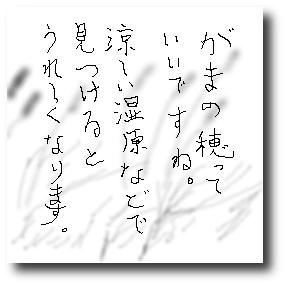 がまの穂って
いいですね。
涼しい湿原などで
見つけると
うれしくなります。